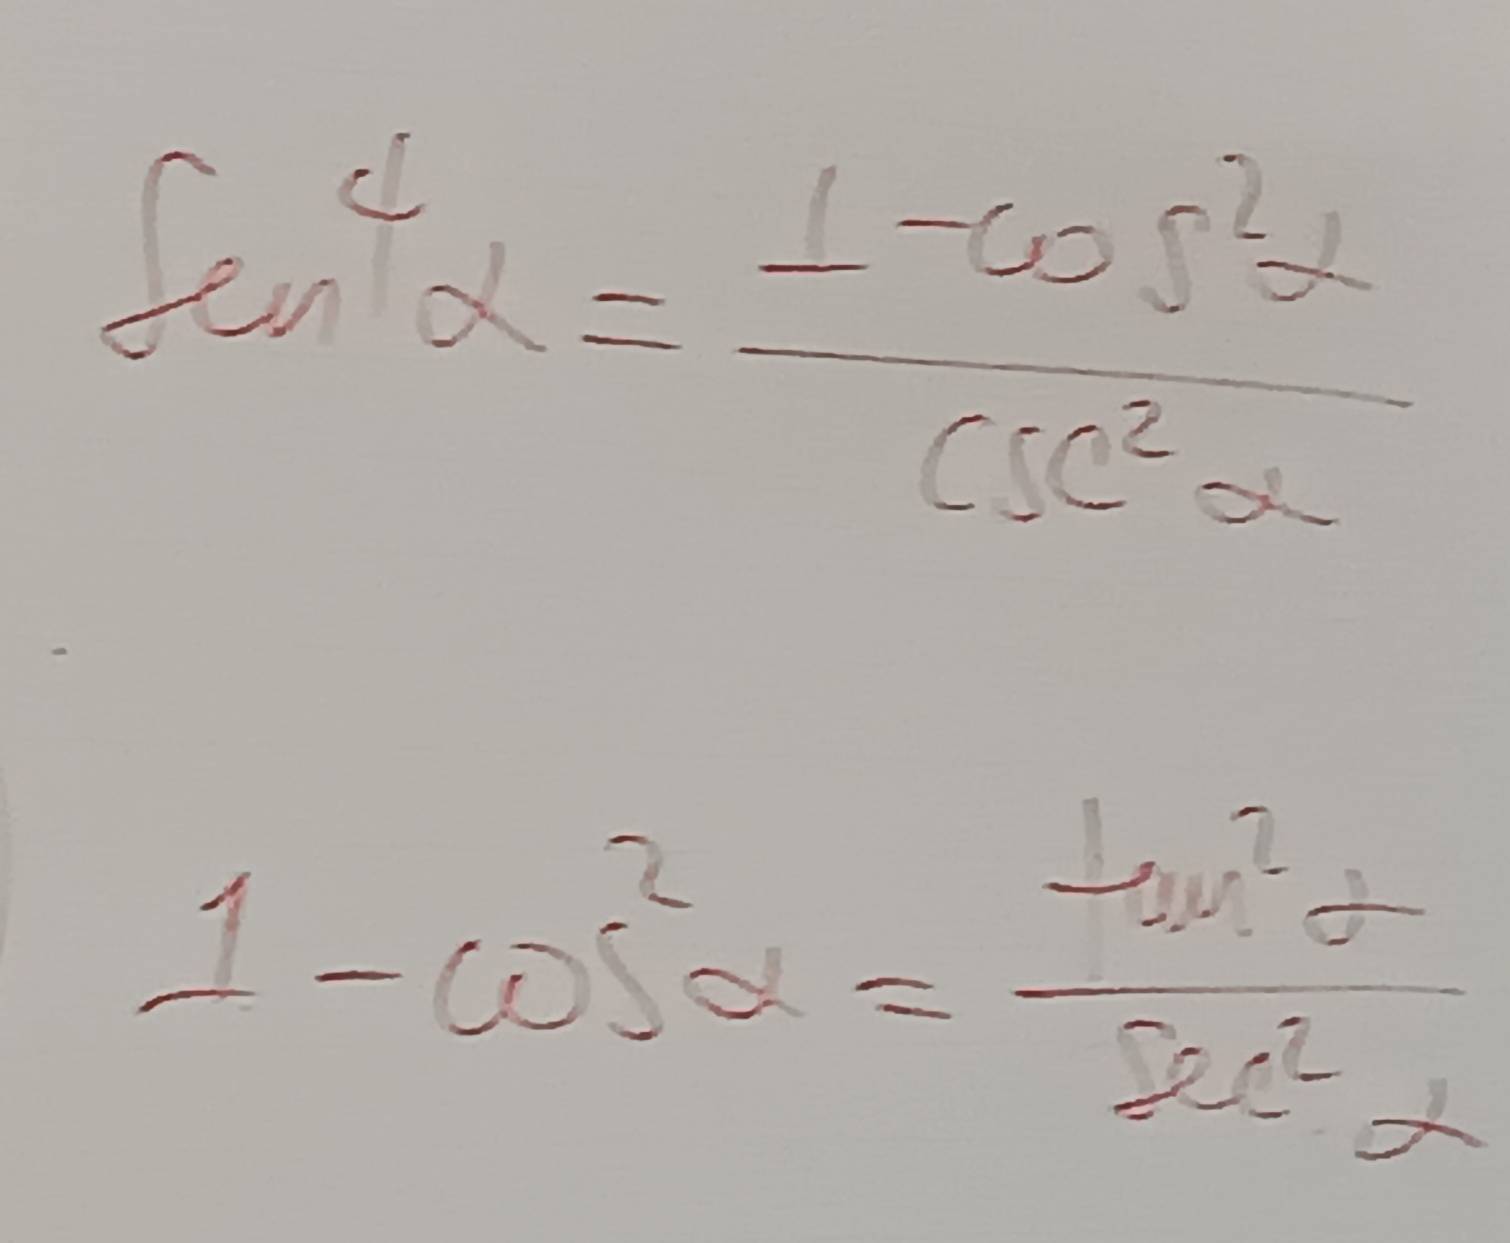 sen⁴α = (1 - cos²α) / (csc²α)
1 - cos²α = (tan²α) / (sec²α)